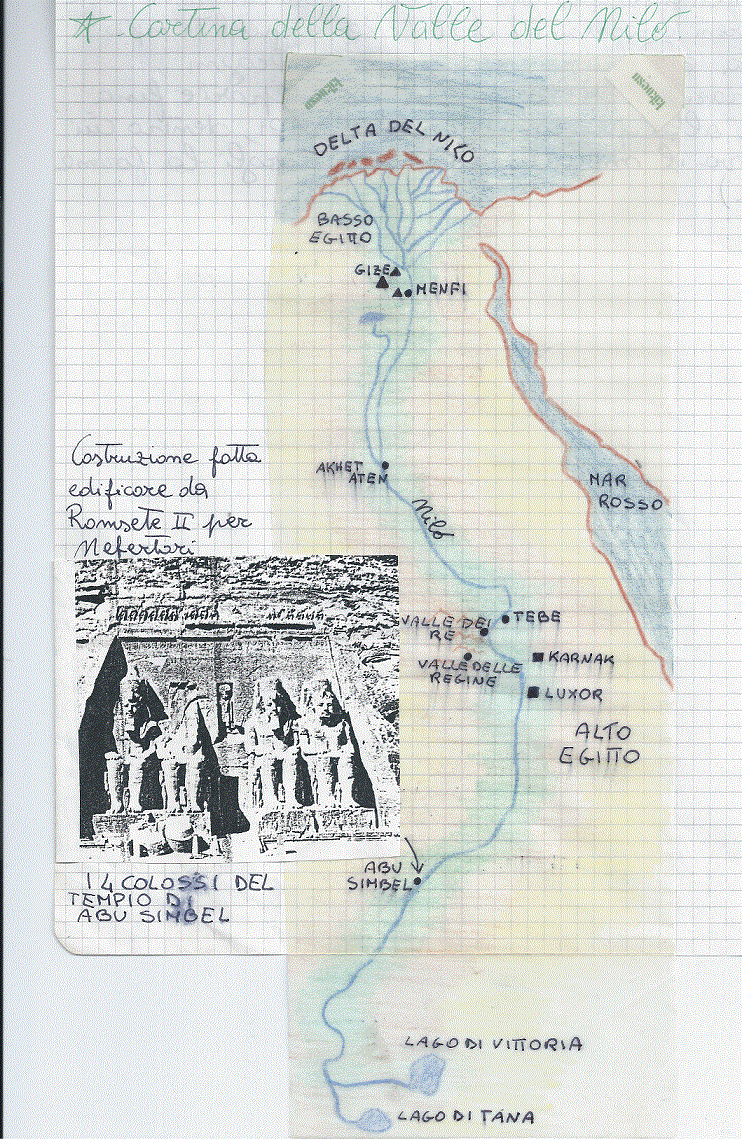 * Cartina della Valle del Nilo
DELTA DEL NICO
BASSO
EGITTO
GIZE
MENFI
AKHET
ATEN
Nilo
MAR
ROSSO
Costruzione fatta
edificare da
Ramsete II per
Nefertari
VALLE DEI
RE
TEBE
VALLE DELLE
REGINE
KARNAK
LUXOR
ALTO
EGITTO
ABU
SIMBEL
I 4 COLOSSI DEL
TEMPIO DI
ABU SIMBEL
LAGO DI VITTORIA
LAGO DI TANA